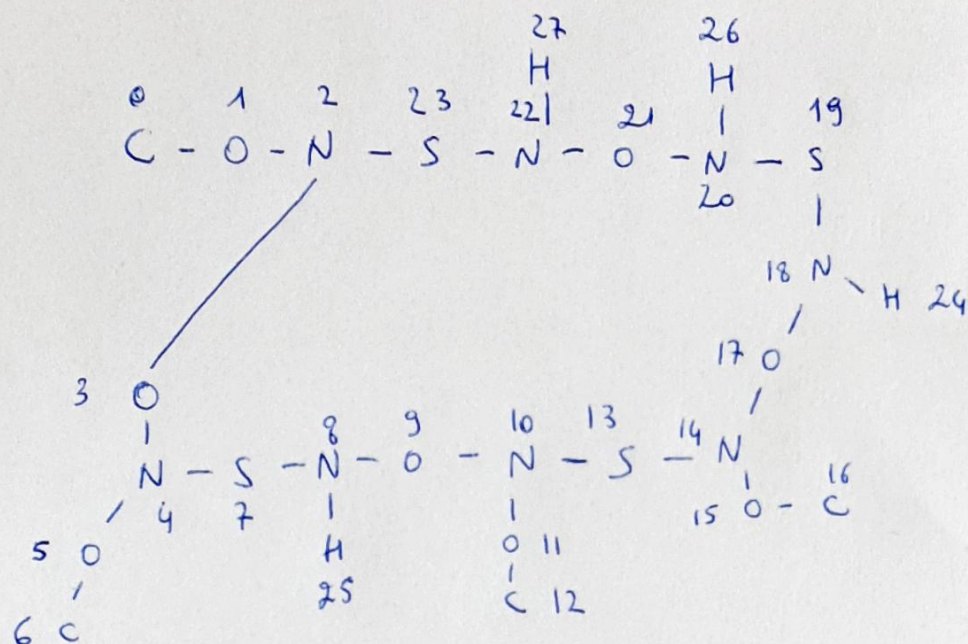 27 26
H H
0 1 2 23 22 21 19
C - O - N - S - N - O - N - S
20
18 N H 24
17 O
3 O
8 9 10 13 14
N - S - N - O - N - S - N
4 7 16
15 O - C
5 O H O 11
25
6 C C 12